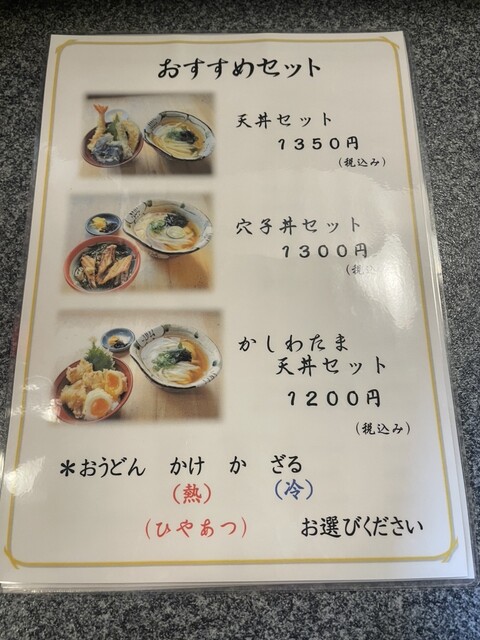 おすすめセット
天丼セット
1350円
(税込み)
穴子丼セット
1300円
(税
かしわたま
天丼セット
1200円
(税込み)
*おうどん かけ か ざる
(熱) (冷)
(ひやあつ) お選びください